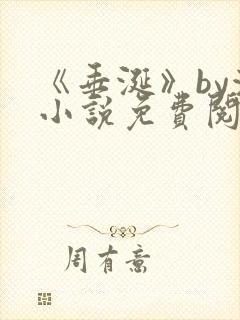 《垂涎》by
小说免费阅
周有意